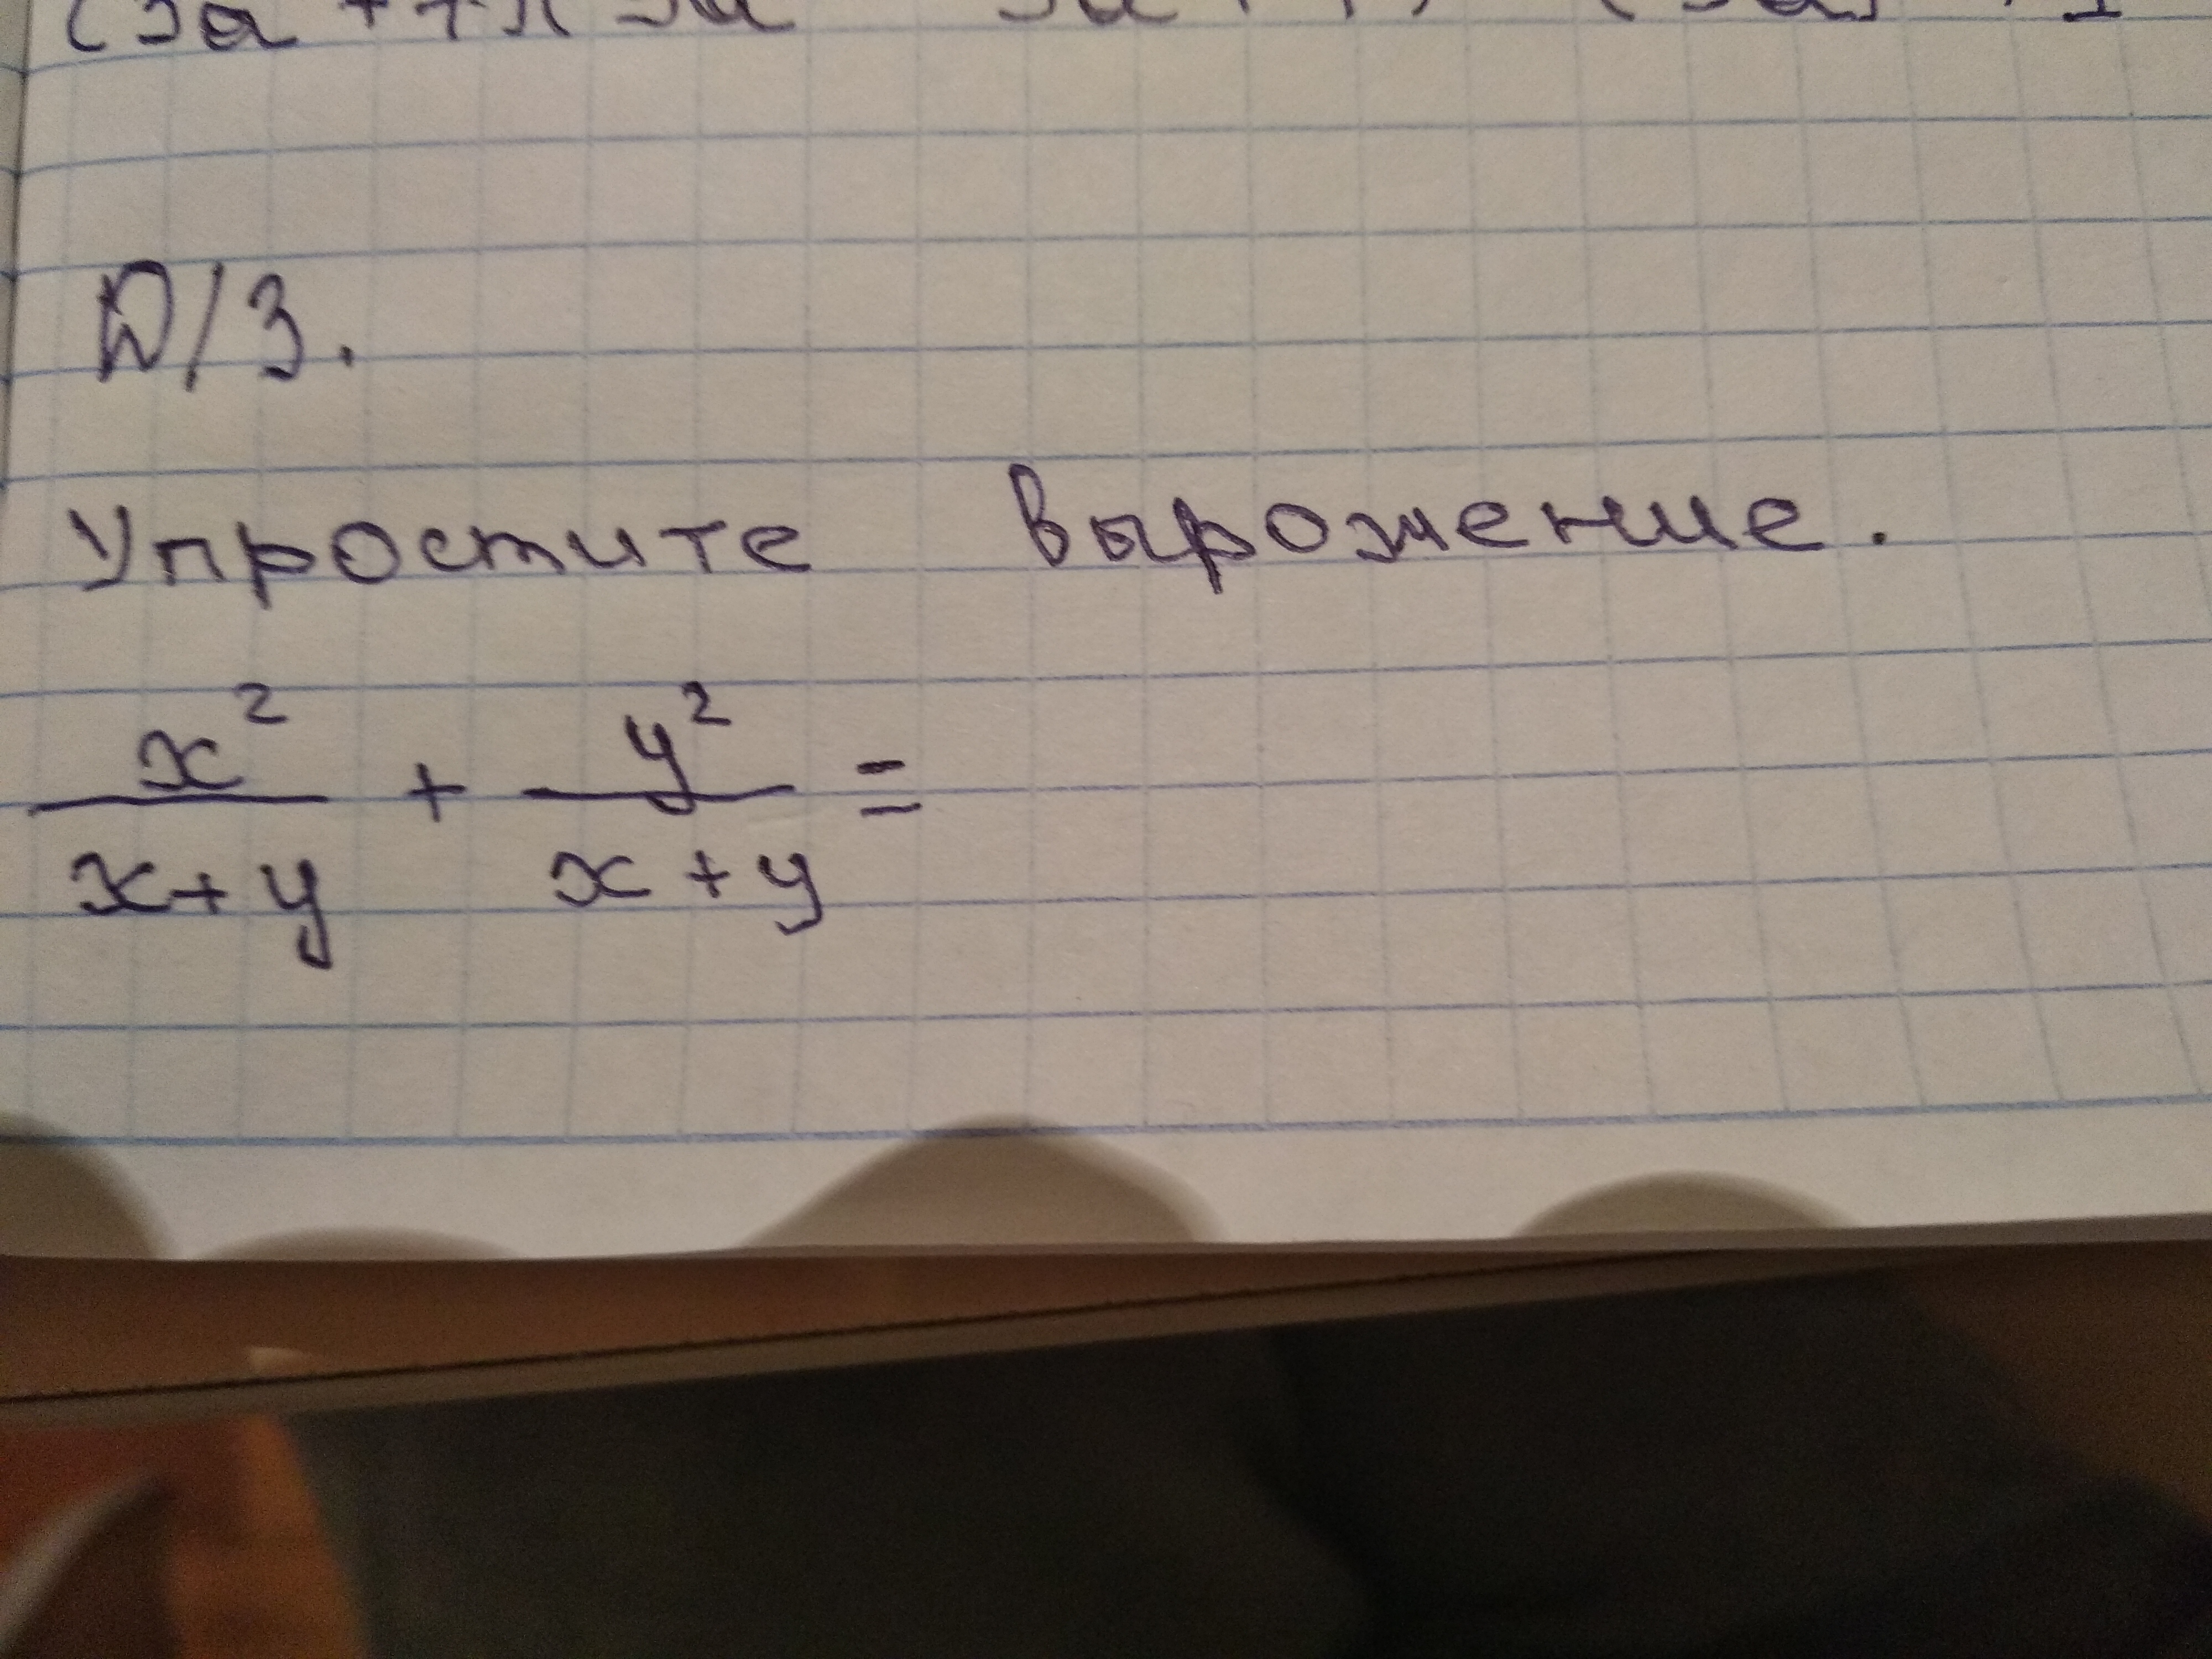 Д/З.
Упростите вырожение.
x² / (x+y) + y² / (x+y) =